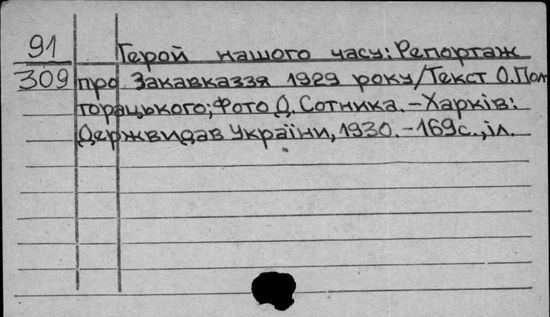 91 Герой нашого часу: Репортаж
309 про Закавказзя 1929 року/Текст О.Пол
торацького; Фото Д. Сотника. – Харків:
Держвидав України, 1930. – 169с., іл.